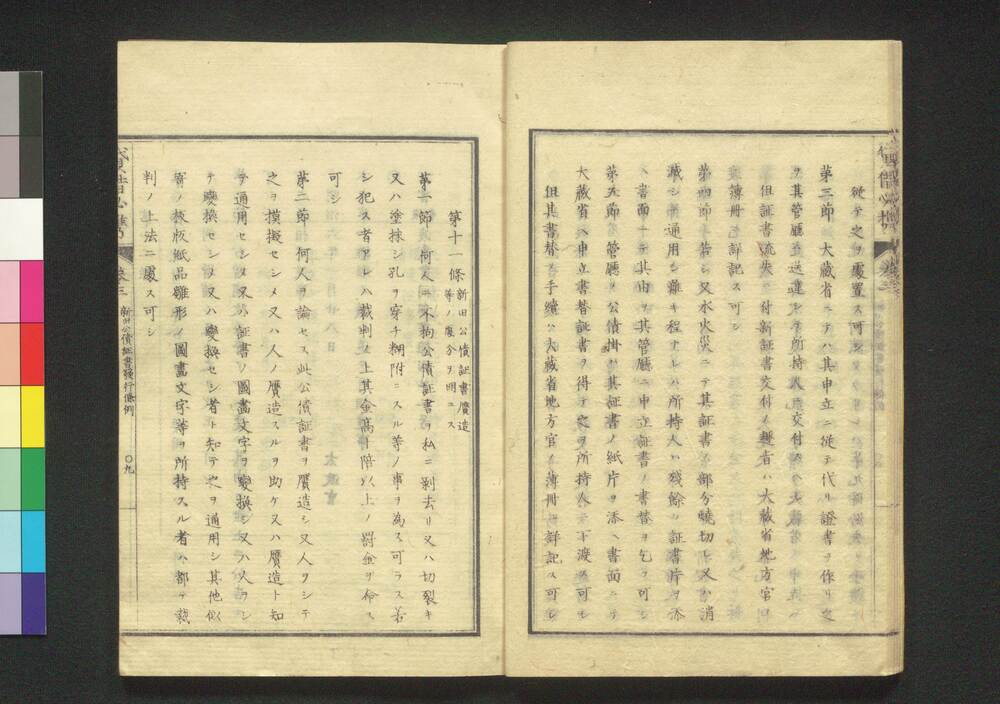 從テ之ヲ處置ス可シ
第三節 大蔵省ニテハ其申立ニ従テ代リ證書ヲ作リ之
ヲ其管廳ニ送達シ所持人ニ交付ス
但証書流失ニ付新証書交付ノ趣者ハ大蔵省地方官ロ
簿冊ニ詳記ス可シ
第四節 若シ又水火災ニテ其証書ノ部分焼切レ又ハ消
滅シ通用シ難キ程ナレハ所持人ハ残餘ノ証書片ヲ添
ヘ書面ニテ其由ヲ其管廳ニ申立証書ノ書替ヲ乞フ可シ
第五節 管廳ノ公債掛ハ其証書ノ紙片ヲ添ヘ書面ニテ
大蔵省ヘ申立書替証書ヲ得テ之ヲ所持人ニ下渡ス可シ
但其書替ノ手續ハ大蔵省地方官ノ薄冊ニ詳記ス可シ
第十一條 新旧公債証書贋造
等ノ處分ヲ明ニス
第一節 何人ニ不拘公債証書ヲ私ニ剥去リ又ハ切裂キ
又ハ塗抹シ孔ヲ穿チ糊附ニスル等ノ事ヲ為ス可ラス若
シ犯ス者アレハ裁判ノ上其金高ニ陪以上ノ罰金ヲ命ス
可シ
第二節 何人ヲ論セス此公債証書ヲ贋造シ又人ヲシテ
之ヲ摸擬セシメ又ハ人ノ贋造スルヲ助ケ又ハ贋造ト知
テ通用セシメ又ハ証書ノ圖畵文字ヲ變換シ又ハ人ヲシ
テ變換セシメ又ハ變換セシ者ト知テ之ヲ通用シ其他似
寄ノ板版紙品雛形ノ圖畵文字等ヲ所持スル者ハ都テ裁
判ノ上法ニ處ス可シ
巻三 新旧公債証書發行條例 〇九